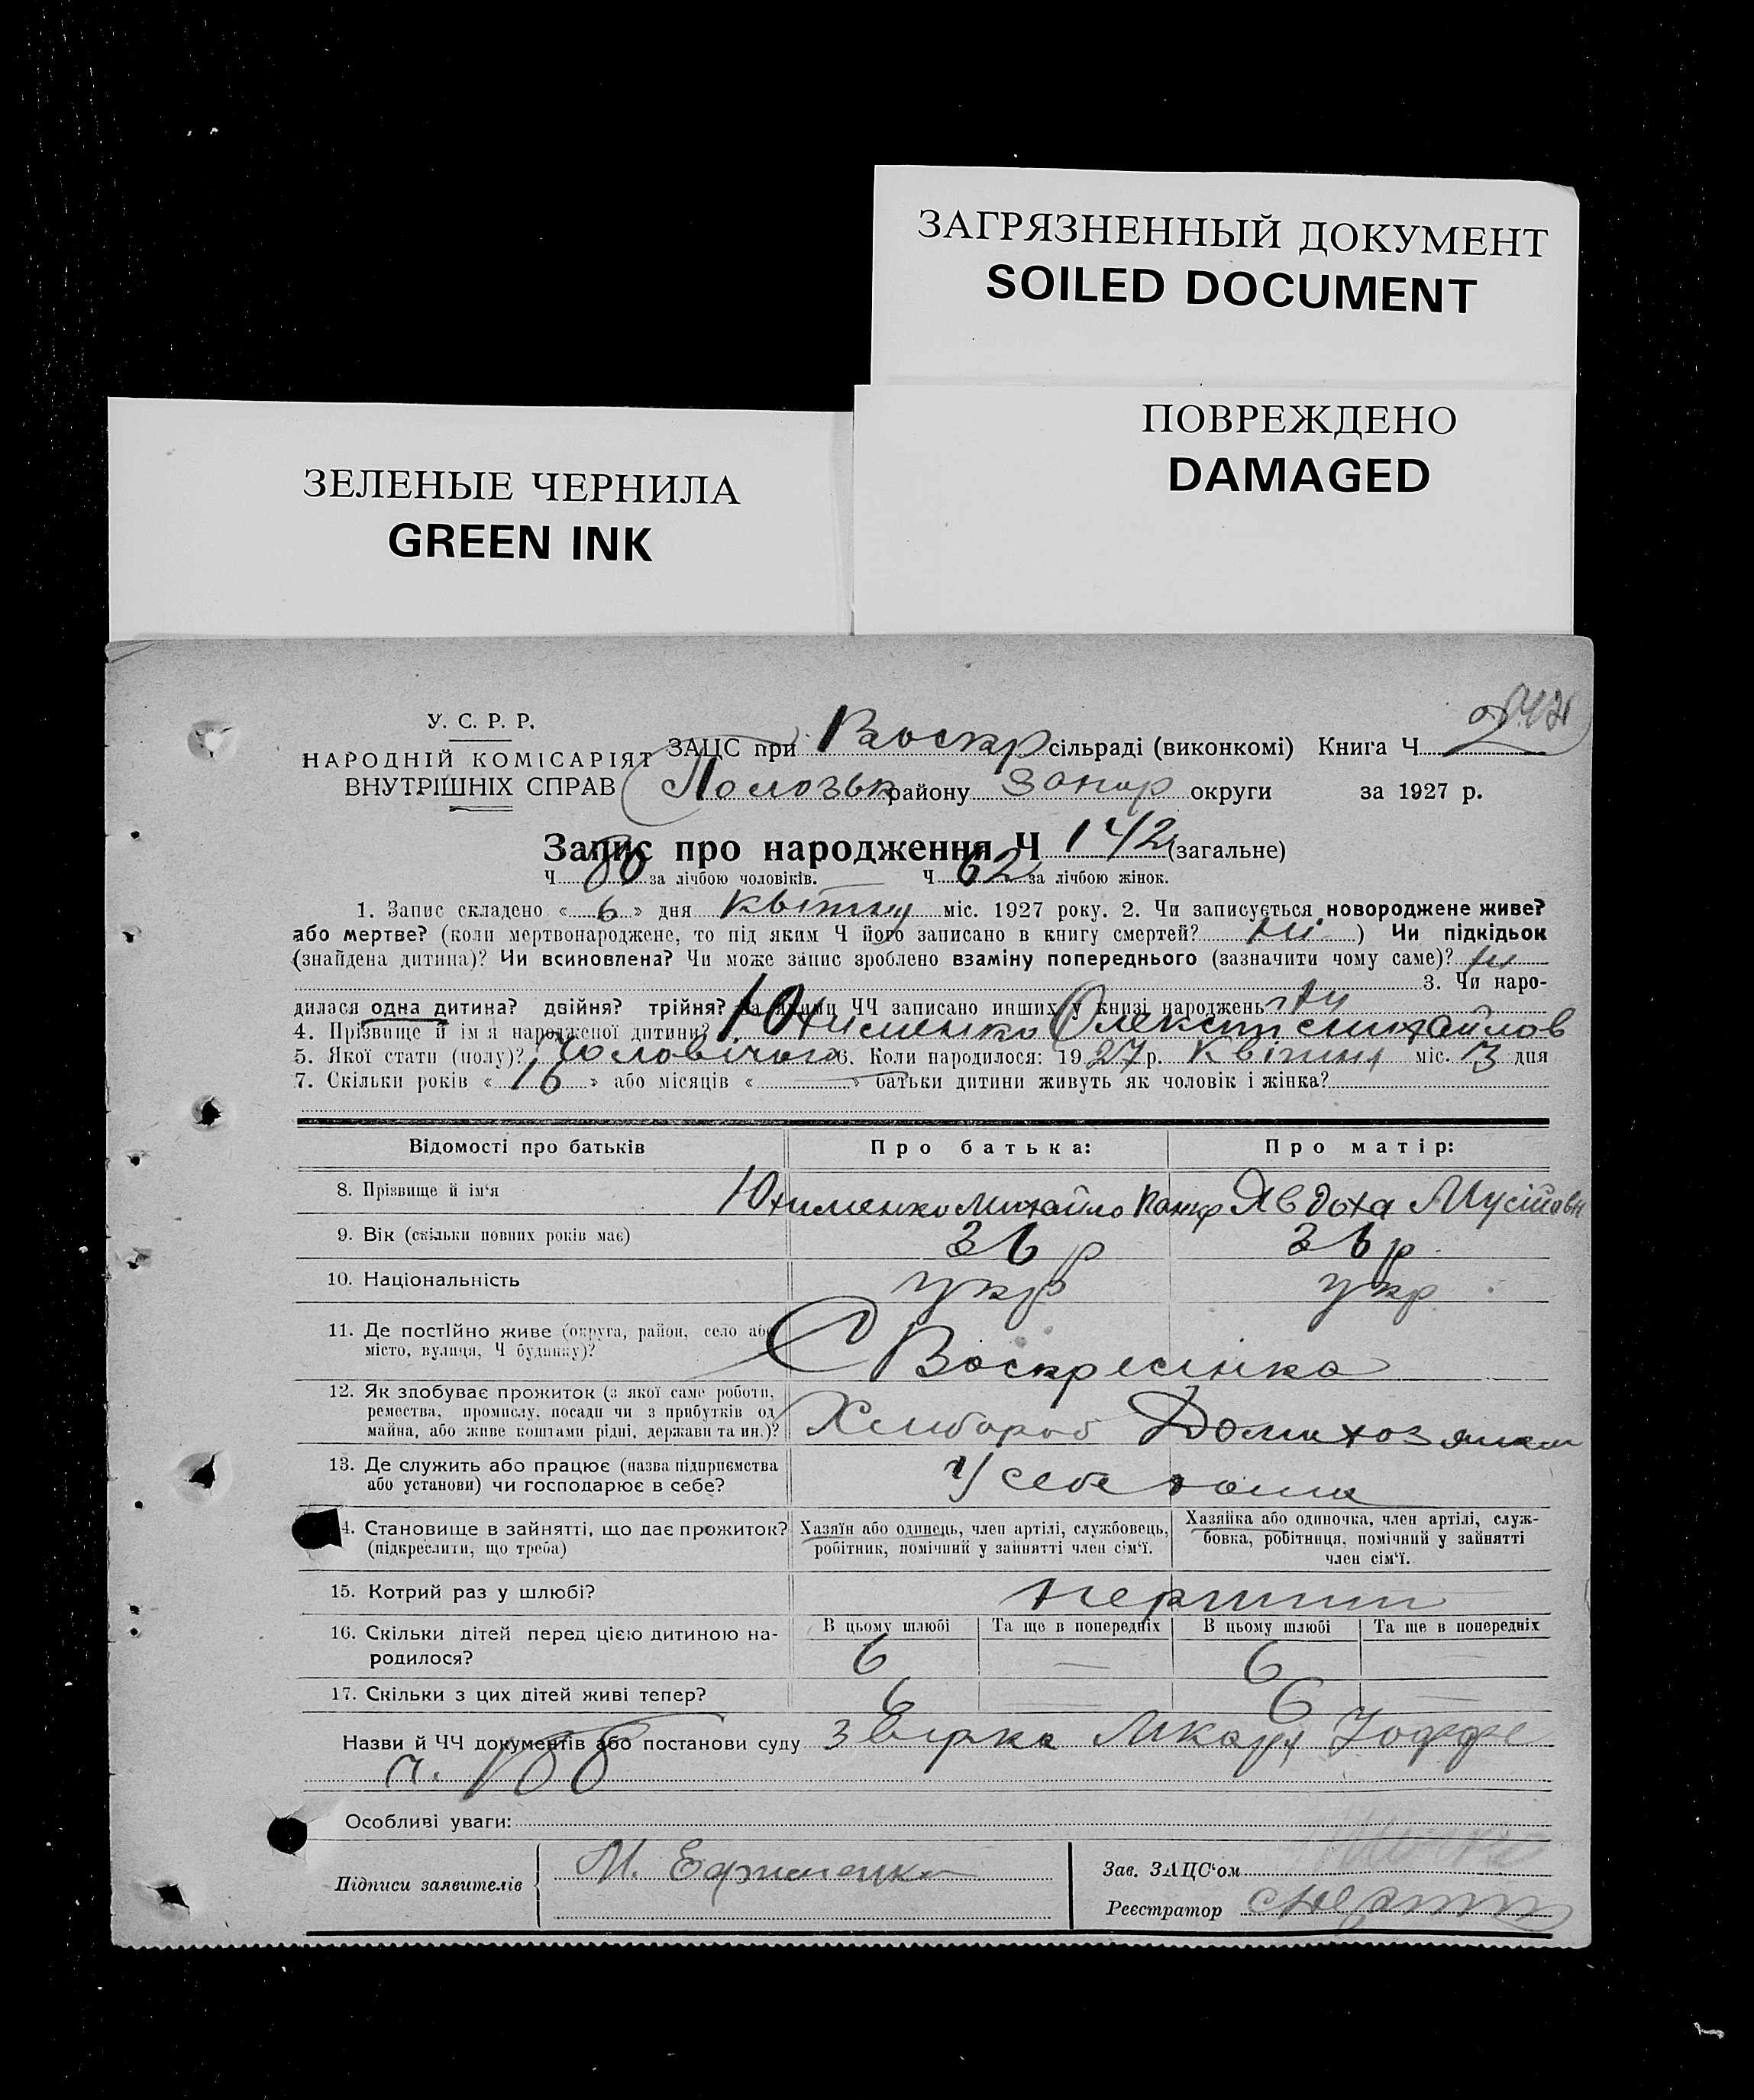 ЗАГРЯЗНЕННЫЙ ДОКУМЕНТ
SOILED DOCUMENT
ПОВРЕЖДЕНО
DAMAGED
ЗЕЛЕНЫЕ ЧЕРНИЛА
GREEN INK
У. С. Р. Р.
НАРОДНІЙ КОМІСАРІЯТ
ВНУТРІШНІХ СПРАВ
ЗАЦС при Воскр сільраді (виконкомі) Книга Ч 2
Пологськ району Запор округи за 1927 р.
Запис про народження Ч 142 (загальне)
Ч 80 за лічбою чоловіків. Ч 62 за лічбою жінок.
1. Запис складено « 6 » дня квітня міс. 1927 року. 2. Чи записується новороджене живе?
або мертве? (коли мертвонароджене, то під яким Ч його записано в книгу смертей? ні ) Чи підкідьок
(знайдена дитина)? Чи всиновлена? Чи може запис зроблено взаміну попереднього (зазначити чому саме)? ні
3. Чи наро-
дилася одна дитина? двійня? трійня? за якими ЧЧ записано инших у книзі народжень ні
4. Прізвище й ім'я народженої дитини? Юхименко Олексій Михайлов
5. Якої стати (полу)? Чоловічого 6. Коли народилося: 1927 р. Квітня міс. 3 дня
7. Скільки років « 16 » або місяців « — » батьки дитини живуть як чоловік і жінка?
Відомості про батьків Про батька: Про матір:
8. Прізвище й ім'я Юхименко Михайло Панкр Явдоха Мусіївн
9. Вік (скільки повних років має) 36 р 36 р.
10. Національність укр укр
11. Де постійно живе (округа, район, село або
місто, вулиця, Ч будинку)? С Воскресінка
12. Як здобуває прожиток (з якої саме роботи,
ремества, промислу, посади чи з прибутків од
майна, або живе коштами рідні, держави та ин.)? Хлибороб Домихозяйка
13. Де служить або працює (назва підприємства
або установи) чи господарює в себе? У себе дома
4. Становище в зайнятті, що дає прожиток?
(підкреслити, що треба)
Хазяїн або одинець, член артілі, службовець,
робітник, помічний у зайнятті член сім'ї.
Хазяйка або одиночка, член артілі, служ-
бовка, робітниця, помічний у зайнятті
член сім'ї.
15. Котрий раз у шлюбі? перший
16. Скільки дітей перед цією дитиною на-
родилося?
В цьому шлюбі Та ще в попередніх В цьому шлюбі Та ще в попередніх
6 — 6 —
17. Скільки з цих дітей живі тепер? 6 — 6 —
Назви й ЧЧ документів або постанови суду
ч. 188
Особливі уваги:
Підписи заявителів М. Ефименко
Зав. ЗАЦС'ом
Реєстратор